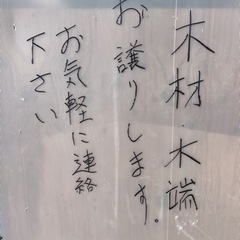 木材・木端
お譲りします。
お気軽に連絡
下さい